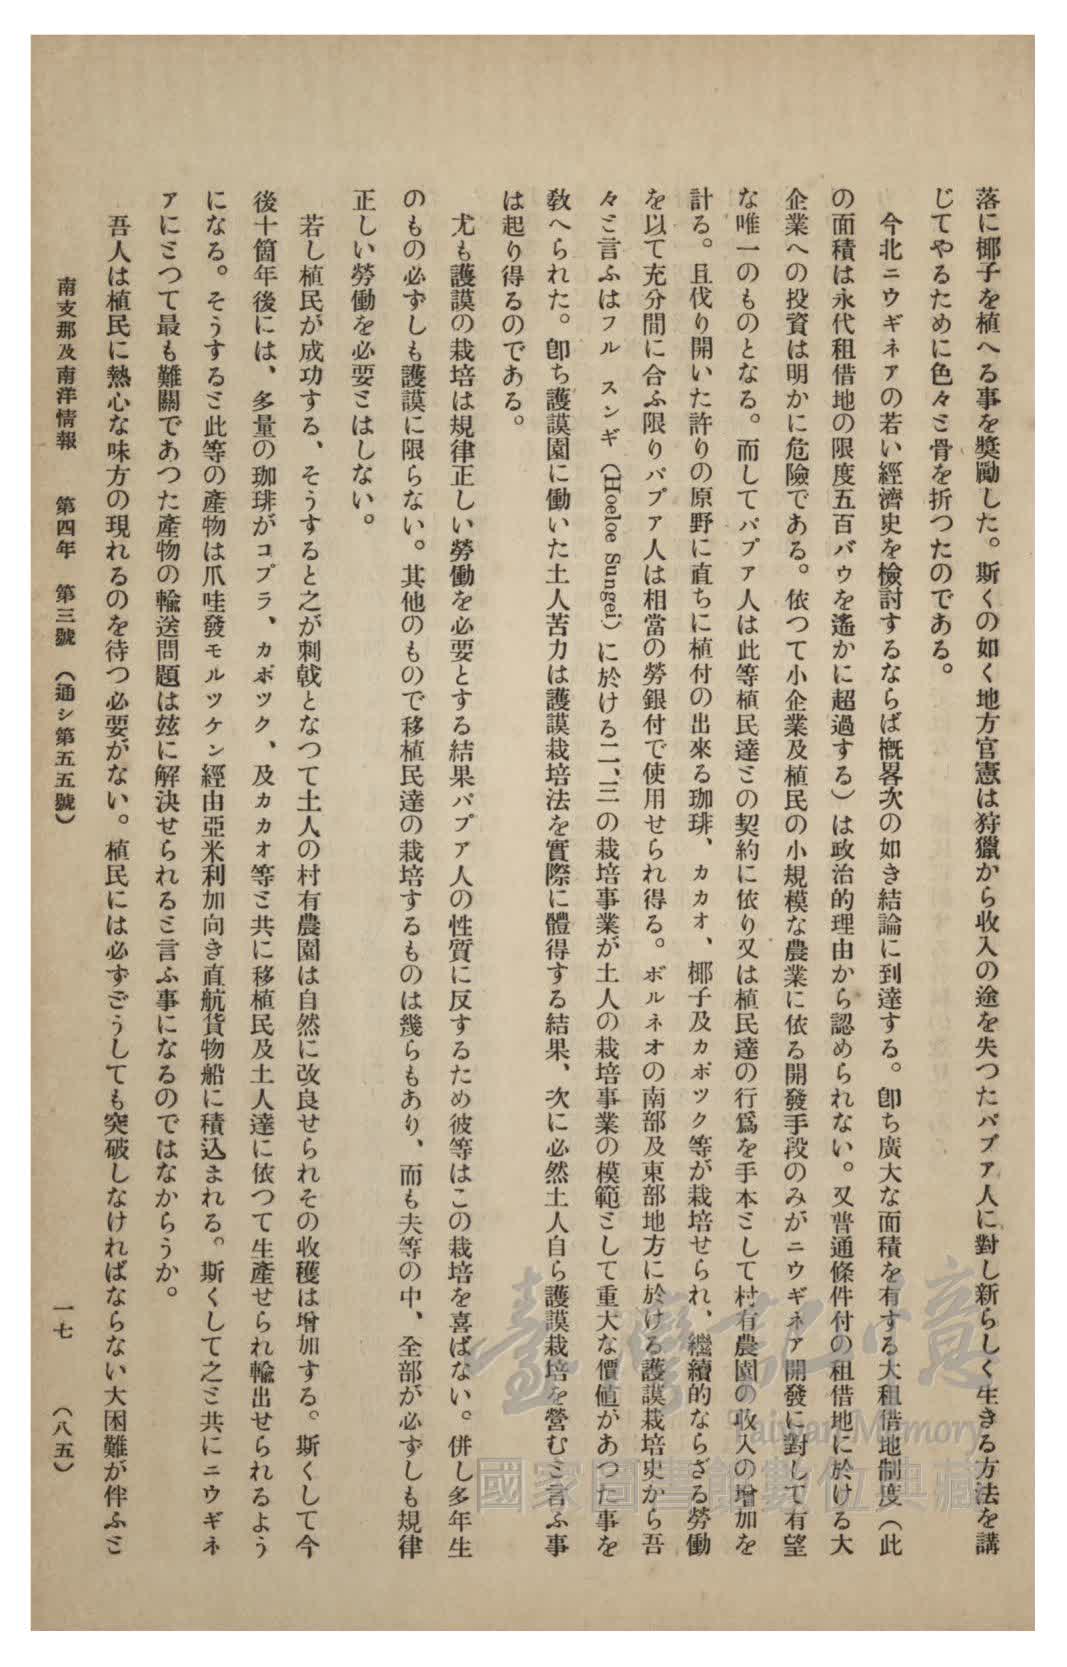 落に椰子を植へる事を奬勵した。斯くの如く地方官憲は狩獵から收入の途を失つたパプア人に對し新らしく生きる方法を講
じてやるために色々ミ骨を折つたのである。
今北ニウギネアの若い經濟史を檢討するならば槪畧次の如き結論に到達する。卽ち廣大な面積を有する大租借地制度（此
の面積は永代租借地の限度五百バウを遙かに超過する）は政治的理由から認められない。又普通條件付の租借地に於ける大
企業への投資は明かに危險である。依つて小企業及植民の小規模な農業に依る開發手段のみがニウギネア開發に對して有望
な唯一のものとなる。而してパプア人は此等植民達ミの契約に依り又は植民達の行爲を手本ミして村有農園の收入の增加を
計る。且伐り開いた許りの原野に直ちに植付の出來る珈琲、カカオ、椰子及カポック等が栽培せられ、繼續的ならざる勞働
を以て充分間に合ふ限りパプア人は相當の勞銀付で使用せられ得る。ボルネオの南部及東部地方に於ける護謨栽培史から吾
々ミ言ふはフル スンギ（Hoeloe Sungei）に於ける二、三の栽培事業が土人の栽培事業の模範ミして重大な價値があつた事を
敎へられた。卽ち護謨園に働いた土人苦力は護謨栽培法を實際に體得する結果、次に必然土人自ら護謨栽培を營むミ言ふ事
は起り得るのである。
尤も護謨の栽培は規律正しい勞働を必要とする結果パプア人の性質に反するため彼等はこの栽培を喜ばない。併し多年生
のもの必ずしも護謨に限らない。其他のもので移植民達の栽培するものは幾らもあり、而も夫等の中、全部が必ずしも規律
正しい勞働を必要ミはしない。
若し植民が成功する、そうすると之が刺戟となつて土人の村有農園は自然に改良せられその收穫は增加する。斯くして今
後十箇年後には、多量の珈琲がコプラ、カポック、及カカオ等ミ共に移植民及土人達に依つて生產せられ輸出せられるよう
になる。そうするミ此等の產物は爪哇發モルツケン經由亞米利加向き直航貨物船に積込まれる。斯くして之ミ共にニウギネ
アにミつて最も難關であつた產物の輸送問題は玆に解決せられるミ言ふ事になるのではなからうか。
吾人は植民に熱心な味方の現れるのを待つ必要がない。植民には必ずごうしても突破しなければならない大困難が伴ふミ
南支那及南洋情報 第四年 第三號 （通シ第五五號） 一七 （八五）
臺灣記憶
Taiwan Memory
國家圖書館數位典藏